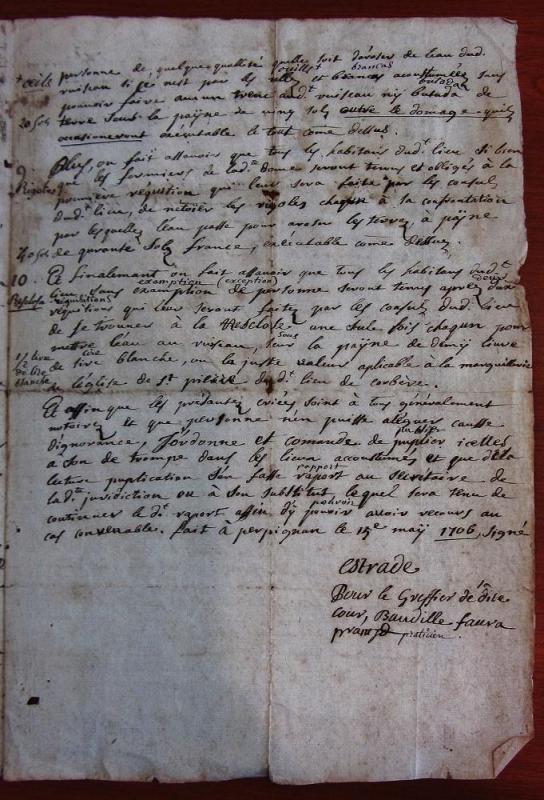 œuils brancas
+ œils personne de quelque quallité quelle soit dévoser de leau dud.
ruisseau si ce nest pas les œulls et brancas acoustumées sans
butada
pouvoir faire aucun trenc audt. ruisseau ny butada de
20 sols terre sous la payne de vingt sols outre le domage quils
ocasioneront exécutable le tout come dessus.
9 Plus, on fait assavoir que tous les habitans dudt. lieu si bien
Rigoles que les fermiers de ladte. dome seront tenus et obligés à la
première réquition qui leur sera faite par les consuls
dudt. lieu, de nétoier les rigoles chaqun à sa confrontation
par lesquelles l'eau passe pour aroser les terres, à payne
40 sols de quarante sols france, exécutable come dessus.
10. Et finalemant on fait assavoir que tous les habitans dudt.
exemption (exception) deux
Resclose lieu sans examption de personne seront tenus après deux
réquisitions
réquitions qui leur seront faites par les consuls dud. lieu
de se trouner à la Resclose une sule fois chaqun pour
sous
1/2 livre mettre leau au ruiseau, seur la payne de demy livre
cire
de cire de sire blanche, ou la juste valeur aplicable à la marguillerie
blanche de l'église de st. pierre dudt. lieu de corbère.
Et affin que les prédautes criées soint à tous généralement
notoires et que personne n'en puisse aléguer causse
publier
dignorance, Jordonne et comande de puplier icelles
à son de trompe dans les lieux acoustumés et que de la
rapport
lecture puplication s'en fasse raport au secrétaire de
ladte. juridiction ou à son substitut, lequel sera tenu de
pouvoir
continuer le dt. raport affin d'y pouvoir avoir recours au
cas convenable. fait à perpignan le 15e may 1706, signé
estrade
Pour le Greffier de dite
cour, Baudille faura
pratien praticien.